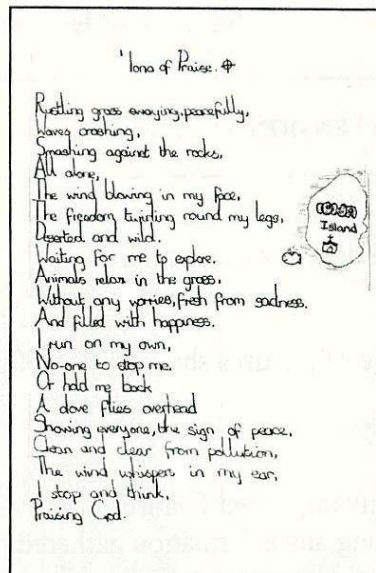 'Iona of Praise.
Rustling grass swaying, peacefully,
Waves crashing,
Smashing against the rocks,
All alone,
The wind blowing in my face,
The freedom twirling round my legs,
Deserted and wild.
Waiting for me to explore.
Animals relax in the grass,
Without any worries, fresh from sadness.
And filled with happiness.
I run on my own,
No-one to stop me.
Or hold me back
A dove flies overhead
Showing everyone, the sign of peace,
Clean and clear from pollution,
The wind whispers in my ear,
I stop and think,
Praising God.
IONA
Island